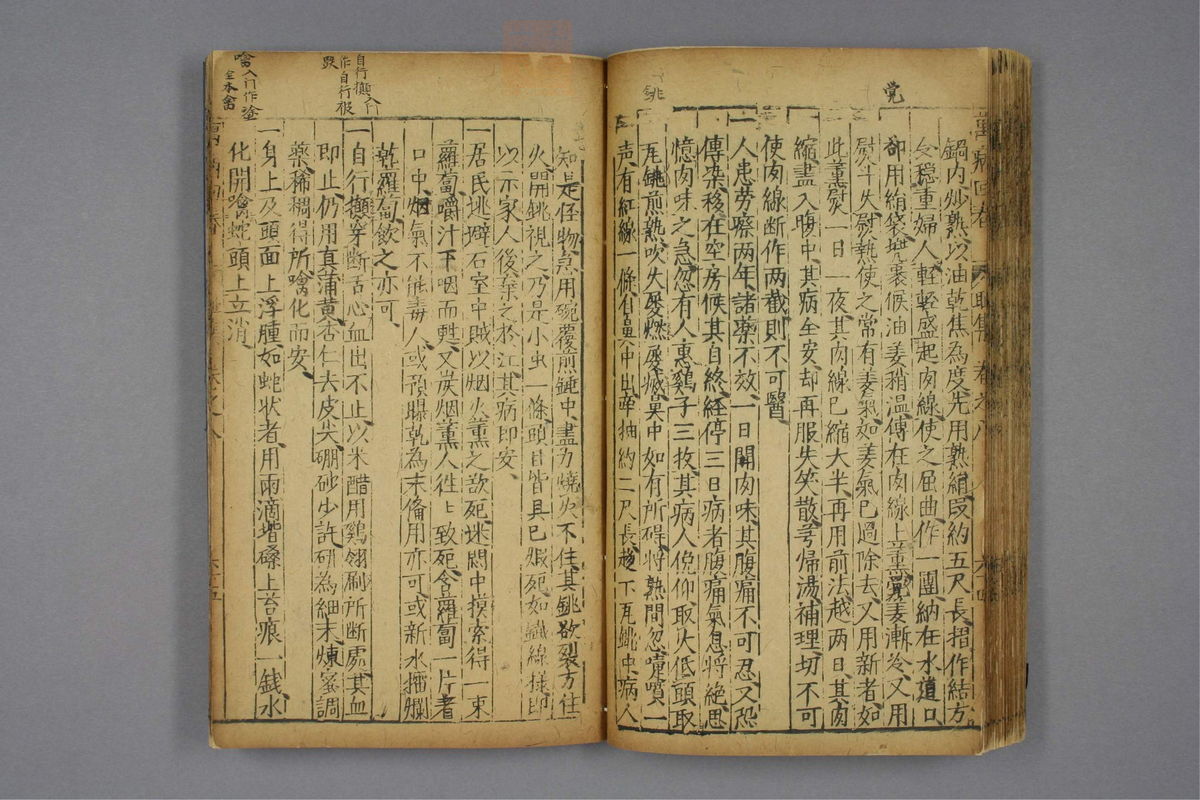 覚
銚
萬病回春 卷之八
鍋内炒熟以油乾焦為度先用熟絹段約五尺長摺作結方
女穩重婦人輕輕盛起肉線使之屈曲作一團納在水道口
卻用絹袋兠裹候油姜稍温傅在肉線上薰覺姜漸冷又用
熨斗火熨熱使之常有姜氣如姜氣已過除去又用新者如
此薰熨一日一夜其肉線已縮大半再用前法越两日其肉
縮盡入腹中其病全安却再服失笑散芎帰湯補理切不可
使肉線断作两截則不可醫
一人患劳瘵两年諸藥不效一日開肉味其腹痛不可忍又恐
傳染移在空房候其自終経停三日病者腹痛氣息將絶思
憶肉味之急忽有人惠鷄子三枚其病人俛仰取火低頭取
瓦銚煎熟吹火屢燃屢滅鼻中如有所碍將熟間忽嚏噴一
声有紅線一條自鼻中出牵抽約二尺長趍下瓦銚中病人
知是怪物急用碗覆煎錘中盡力燒火不住其銚欲裂方住
火開銚視之乃是小虫一條頭目皆具已煅死如鐵線樣即
以示家人後棄之於江其病即安
一居民逃避石室中賊以烟火薰之欲死迷悶中摸索得一束
蘿蔔嚼汁下咽而甦又炭烟薰人徃々致死含蘿蔔一片着
口中烟氣不能毒人或預曝乾為末備用亦可或新水擂爛
乾蘿蔔飲之亦可
一自行攧穿断舌心血出不止以米醋用鷄翎刷所断處其血
即止仍用真蒲黄杏仁去皮尖硼砂少許研為細末煉蜜調
藥稀稠得所噙化而安
一身上及頭面上浮腫如蛇状者用雨滴堦磉上苔痕一錢水
化開噙蛇頭上立消
自行攧入門
作自行被
跌
噙入門作塗
全本噙